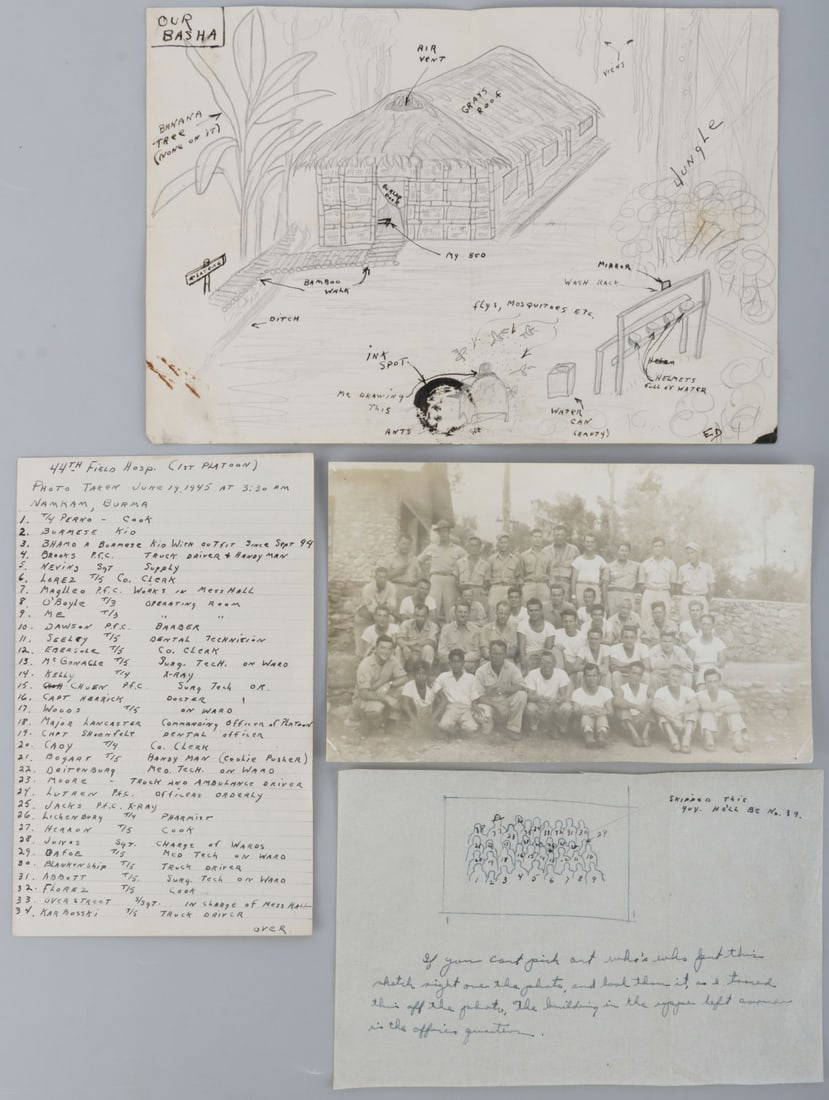 OUR
BASHA
AIR
VENT
GRASS
ROOF
VIENS
BANANA
TREE
(NONE ON IT)
JUNGLE
BURLAP
DOOR
MY BED
BAMBOO
WALK
DITCH
MIRROR
WASH RACK
FLYS, MOSQUITOES ETC.
INK
SPOT.
ME DRAWING
THIS
ANTS
WATER
CAN
(EMPTY)
HELMETS
FULL OF WATER
ED
44TH FIELD HOSP. (1ST PLATOON)
PHOTO TAKEN JUNE 14, 1945 AT 3:30 PM
NAMKAM, BURMA
1. T/4 PERNO - COOK
2. BURMESE KID
3. BHAMO A BURMESE KID WITH OUTFIT SINCE SEPT 44
4. BROOKS P.F.C. TRUCK DRIVER & HANDY MAN
5. NEVINS SGT SUPPLY
6. LOREZ T/5 CO. CLERK
7. MAGLLEO P.F.C. WORKS IN MESS HALL
8. O'BOYLE T/3 OPERATING ROOM
9. ME T/3 " "
10. DAWSON P.F.C. BARBER
11. SEELEY T/5 DENTAL TECHNITION
12. EBERSOLE T/5 CO. CLERK
13. McGONAGLE T/5 SURG. TECH. ON WARD
14. KELLY T/4 X-RAY
15. CHUEN P.F.C. SURG TECH OR.
16. CAPT HERRICK DOCTER
17. WOODS T/5 ON WARD
18. MAJOR LANCASTER COMMANDING OFFICER OF PLATOON
19. CAPT SHOENFELT DENTAL OFFICER
20. CADY T/4 CO. CLERK
21. BOGART T/5 HANDY MAN (COOLIE PUSHER)
22. DEITENBURG MED. TECH. ON WARD
23. MOORE - TRUCK AND AMBULANCE DRIVER
24. LUTREN P.F.C. OFFICERS ORDERLY
25. JACKS P.F.C. X-RAY
26. LICHENBURG T/4 PHARMIST
27. HERRON T/5 COOK
28. JONES SGT. CHARGE OF WARDS
29. DAFOE T/5 MED TECH ON WARD
30. BLANKENSHIP T/5 TRUCK DRIVER
31. ABBOTT T/5. SURG. TECH ON WARD
32. FLOREZ T/5 COOK
33. OVERSTREET S/SGT. IN CHARGE OF MESS HALL
34. KARBOSSKI T/5 TRUCK DRIVER
OVER
SKIPPED THIS
GUY. HE'LL BE NO. 39.
1 2 3 4 5 6 7 8 9
If you cant pick out who's who put this
sketch right one the photo, and look thru it, as I traced
this off the photo. The building in the upper left corner
is the officers quarters.